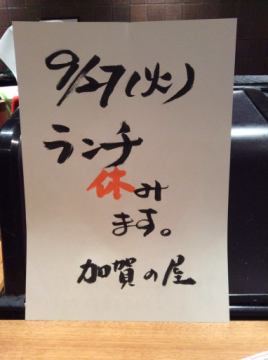 9/27(火)
ランチ
休み
ます。
加賀の屋